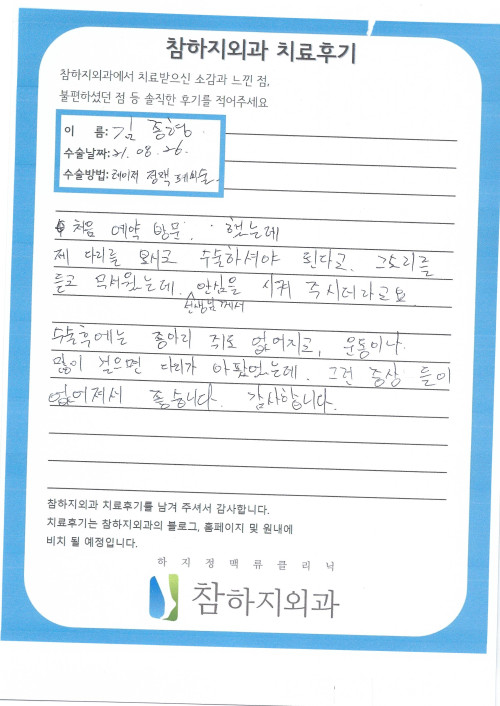 참하지외과 치료후기
참하지외과에서 치료받으신 소감과 느낀 점,
불편하셨던 점 등 솔직한 후기를 적어주세요
이 름: 김
수술날짜: 21. 08. 26.
수술방법: 레이저 정맥 폐쇄술
처음 예약 방문. 했는데
제 다리를 보시고 수술하셔야 된다고. 그소리를
듣고 무서웠는데. 안심을 시켜 주시더라고요.
선생님께서
수술후에는 종아리 쥐도 없어지고, 운동이나.
많이 걸으면 다리가 아팠었는데. 그런 증상 들이
없어져서 좋습니다. 감사합니다.
참하지외과 치료후기를 남겨 주셔서 감사합니다.
치료후기는 참하지외과의 블로그, 홈페이지 및 원내에
비치 될 예정입니다.
하지정맥류클리닉
참하지외과